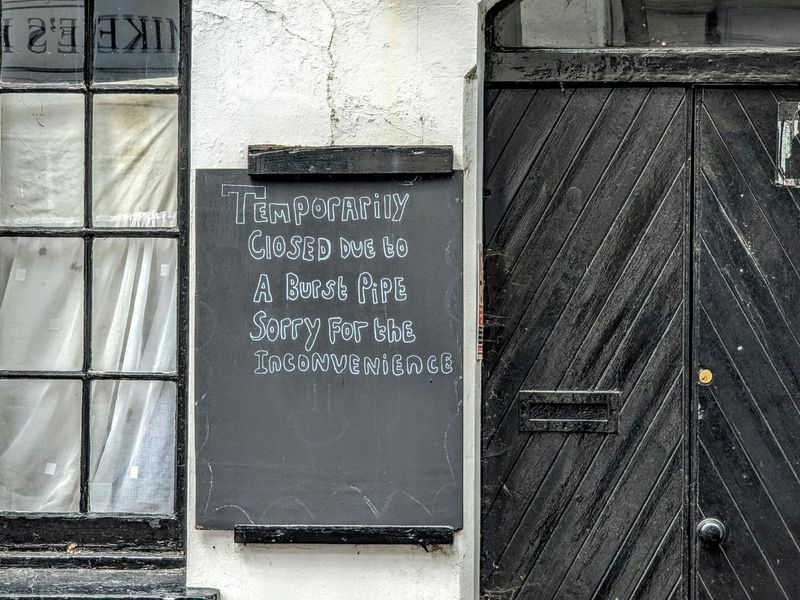 MIKE'S
Temporarily
Closed due to
A Burst Pipe
Sorry For the
Inconvenience